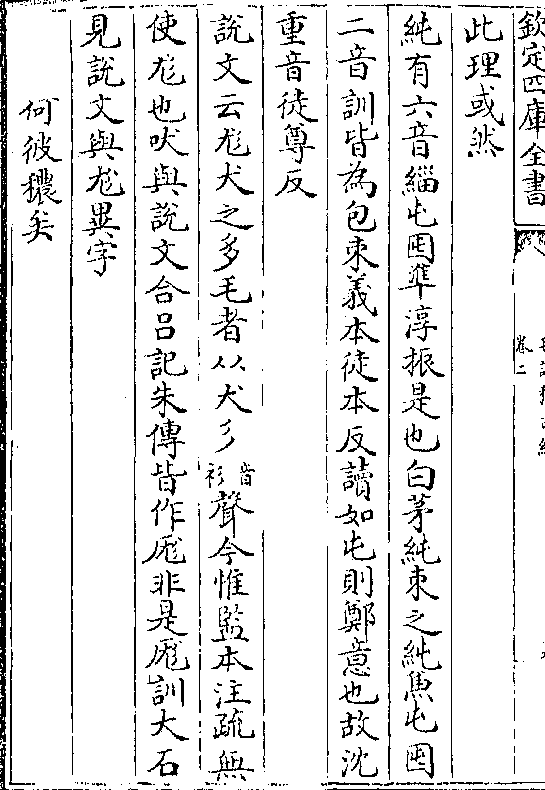 欽定四庫全書
卷二
此理或然
純有六音緇屯囤準淳振是也白茅純束之純兼屯囤
二音訓皆為包束義本徒本反讀如屯則鄭意也故沈
重音徒尊反
說文云尨犬之多毛者从犬彡音衫聲今惟監本注疏無
使尨也吠與說文合呂記朱傳皆作厖非是厖訓大石
見說文與尨異字
何彼穠矣